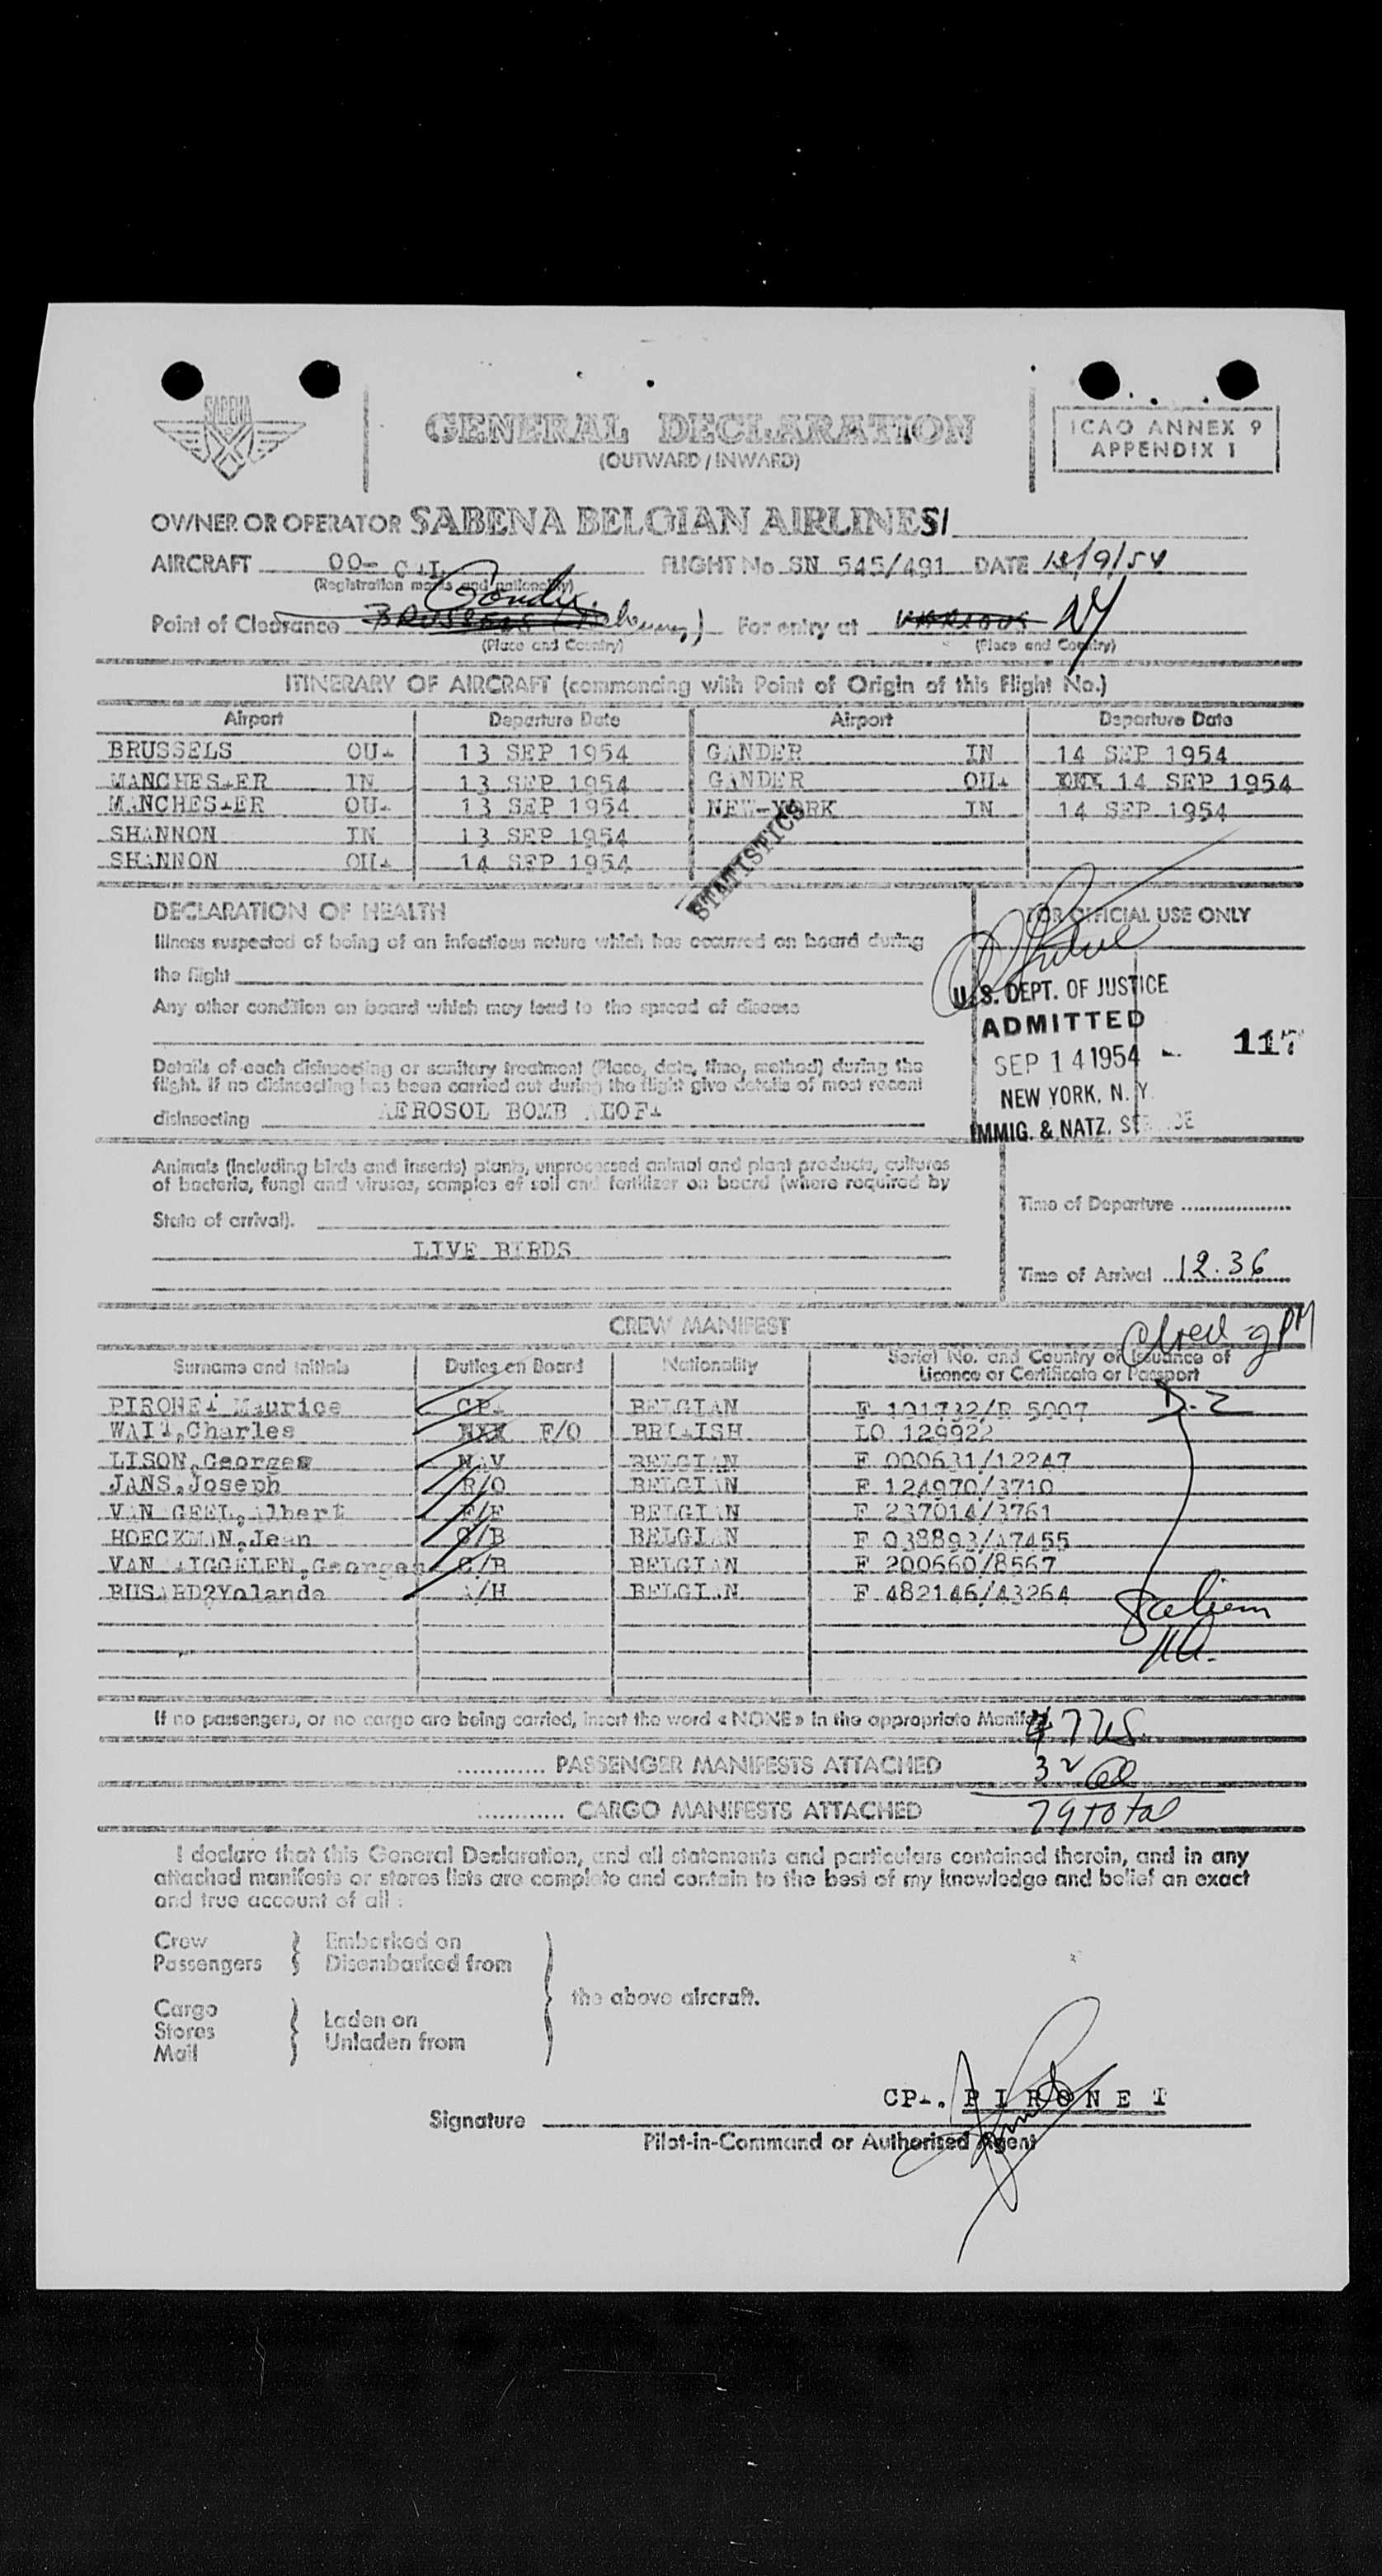 SABENA
GENERAL DECLARATION
(OUTWARD / INWARD)
ICAO ANNEX 9
APPENDIX 1
OWNER OR OPERATOR SABENA BELGIAN AIRLINES
AIRCRAFT OO- FLIGHT No SN 545/491 DATE 13/9/54
(Registration marks and nationality)
Point of Clearance BRUSSELS For entry at VARIOUS NY
(Place and Country) (Place and Country)
ITINERARY OF AIRCRAFT (commencing with Point of Origin of this Flight No.)
Airport Departure Date Airport Departure Date
BRUSSELS OUT 13 SEP 1954 GANDER IN 14 SEP 1954
MANCHESTER IN 13 SEP 1954 GANDER OUT 14 SEP 1954
MANCHESTER OUT 13 SEP 1954 NEW-YORK IN 14 SEP 1954
SHANNON IN 13 SEP 1954
SHANNON OUT 14 SEP 1954
STATISTICS
DECLARATION OF HEALTH
FOR OFFICIAL USE ONLY
Illness suspected of being of an infectious nature which has occurred on board during
the flight
Any other condition on board which may lead to the spread of disease
U.S. DEPT. OF JUSTICE
ADMITTED
SEP 14 1954 117
NEW YORK, N.Y.
IMMIG. & NATZ. SERVICE
Details of each disinsecting or sanitary treatment (Place, date, time, method) during the
flight. If no disinsecting has been carried out during the flight give details of most recent
disinsecting AEROSOL BOMB ALOFT
Animals (including birds and insects) plants, unprocessed animal and plant products, cultures
of bacteria, fungi and viruses, samples of soil and fertilizer on board (where required by
State of arrival).
LIVE BIRDS
Time of Departure
Time of Arrival 12.36
CREW MANIFEST
Surname and initials Duties on Board Nationality Serial No. and Country of Issuance of
Licence or Certificate or Passport
PIRONET Maurice CPT BELGIAN F 101732/R 5007 D-2
WAIT,Charles F/O BRITISH LO 129922
LISON,Georges NAV BELGIAN F 000631/12247
JANS,Joseph R/O BELGIAN F 124970/3710
VAN GEEL,Albert F/E BELGIAN F 237014/3761
HOECKMAN,Jean C/B BELGIAN F 038893/A7455
VAN TIGGELEN,Georges C/B BELGIAN F 200660/8567
BUSARD?Yolande A/H BELGIAN F 482146/43264
If no passengers, or no cargo are being carried, insert the word «NONE» in the appropriate Manifest
47 US
PASSENGER MANIFESTS ATTACHED 32 al
CARGO MANIFESTS ATTACHED 79 total
I declare that this General Declaration, and all statements and particulars contained therein, and in any
attached manifests or stores lists are complete and contain to the best of my knowledge and belief an exact
and true account of all :
Crew Embarked on
Passengers Disembarked from
the above aircraft.
Cargo
Stores Laden on
Mail Unladen from
CPT. PIRONET
Signature
Pilot-in-Command or Authorised Agent